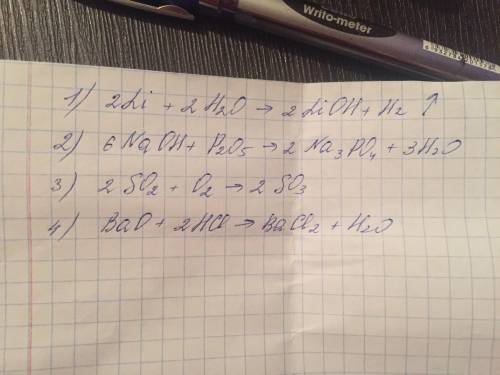 Writo-meter
1) 2Li + 2H₂O → 2LiOH + H₂ ↑
2) 6NaOH + P₂O₅ → 2Na₃PO₄ + 3H₂O
3) 2SO₂ + O₂ → 2SO₃
4) BaO + 2HCl → BaCl₂ + H₂O